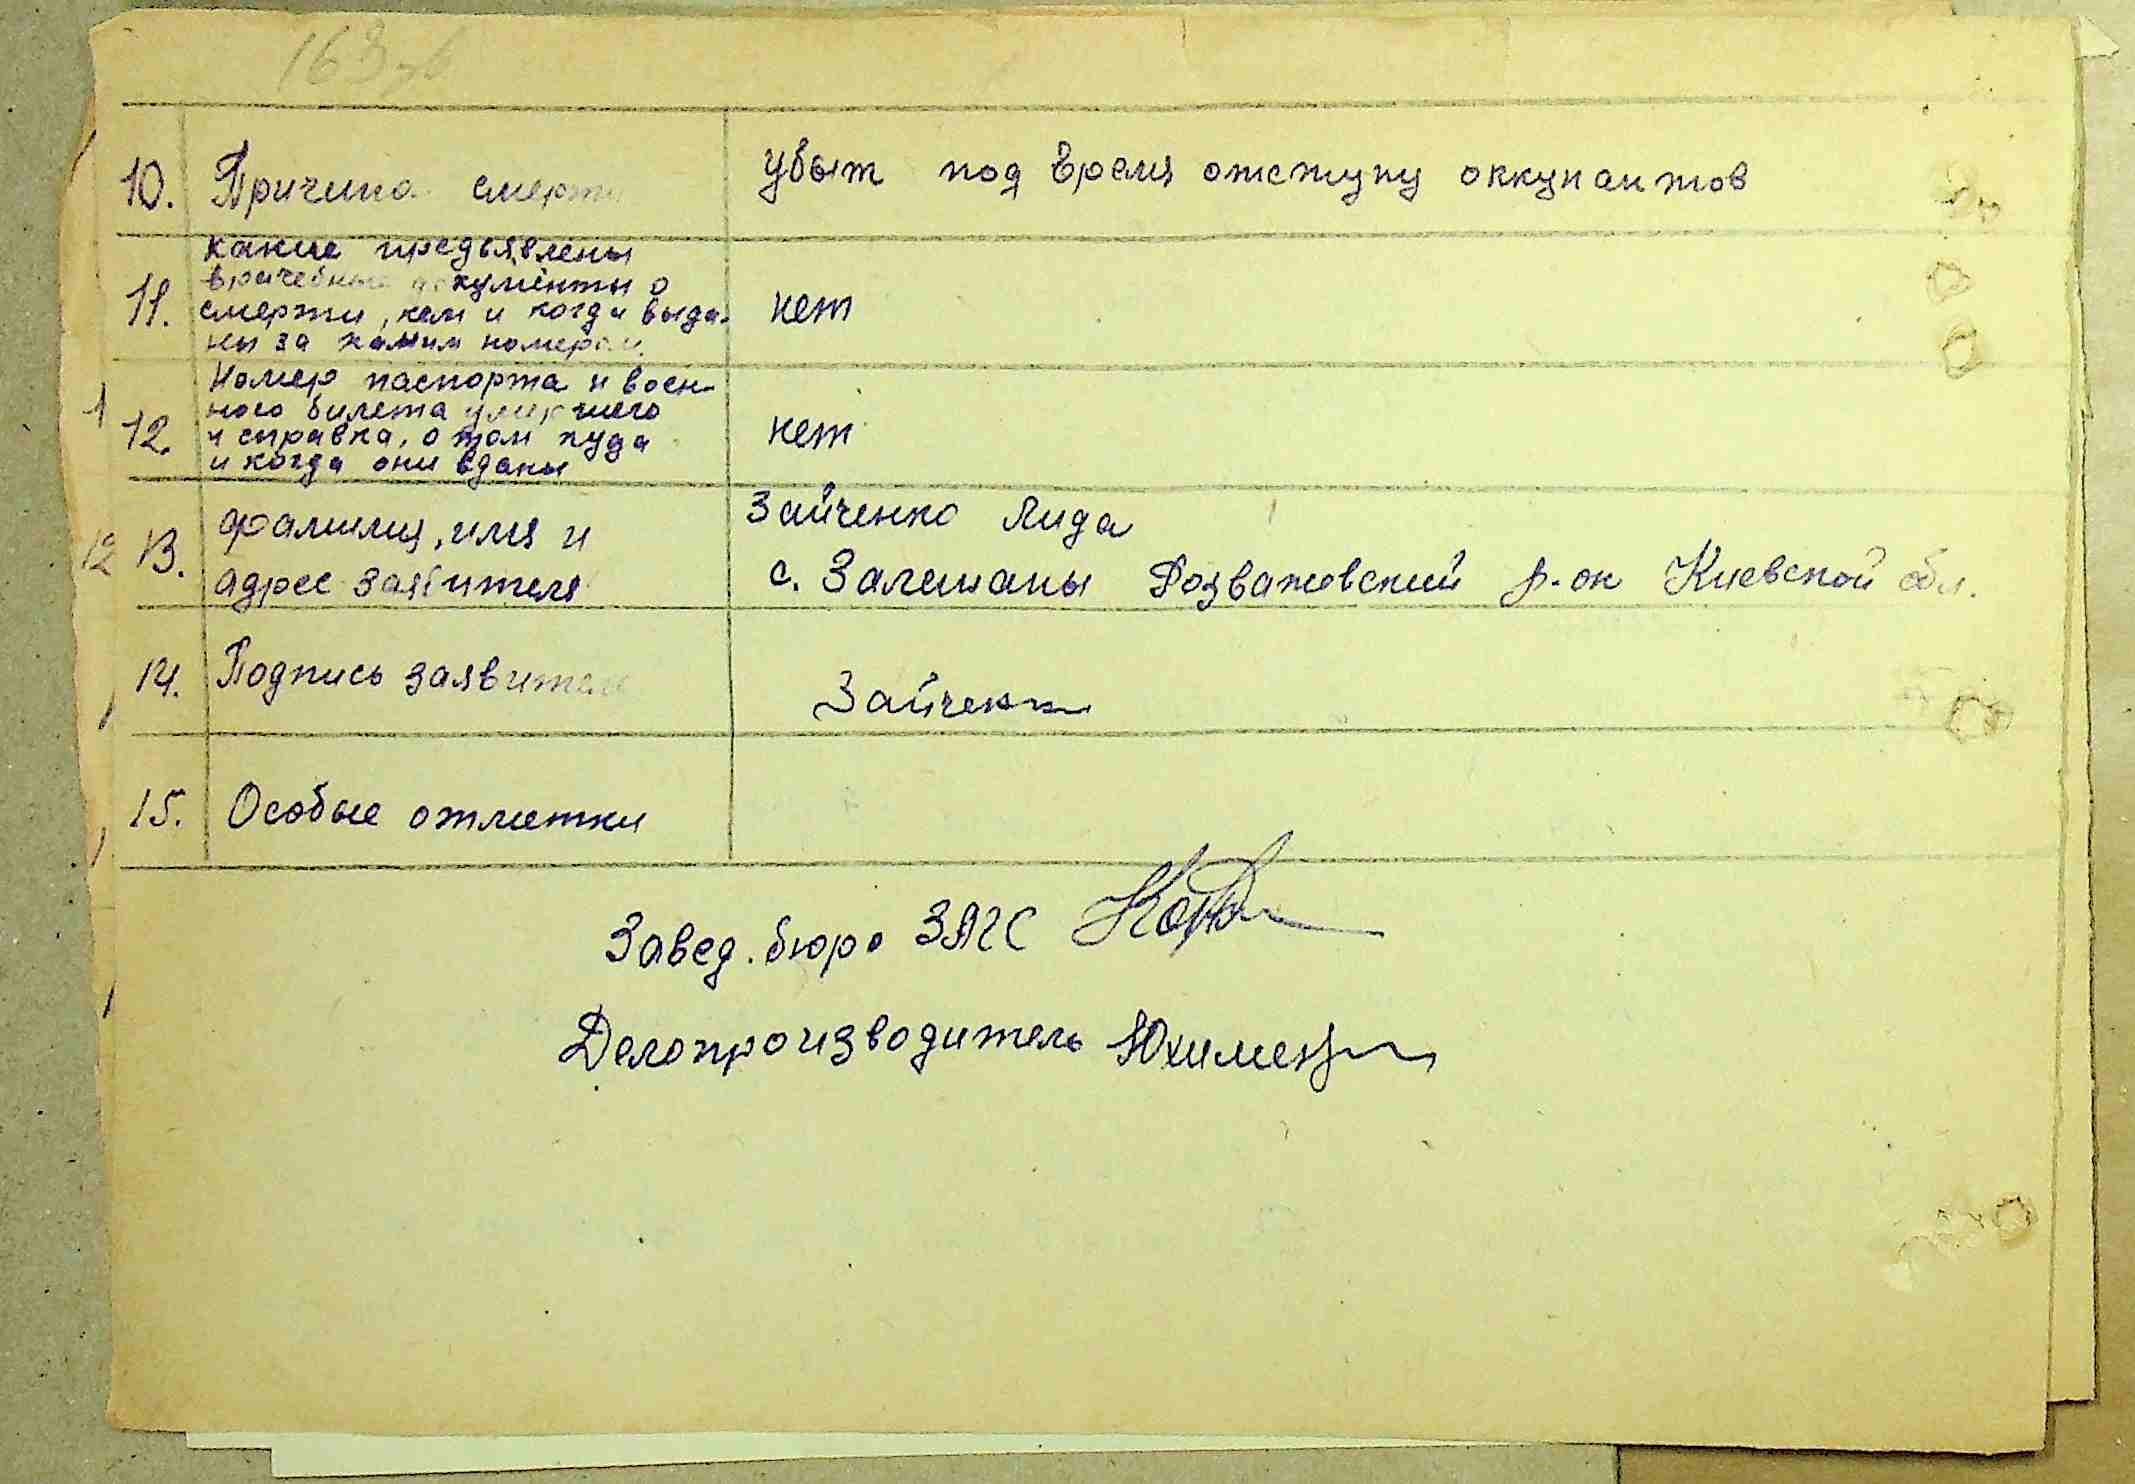 163 зв
10. Причина смерти
убыт под время отступу оккупантов
какие предъявлены
врачебные документы о
11. смерти, кем и когда выда-
ны за каким номером.
нет
Номер паспорта и воен-
ного билета умершего
12. и справка, о том куда
и когда они вданы
нет
13. фамилия, имя и
адрес заявителя
Зайченко Лида
с. Залешаны Розважевский р-ок Киевской обл.
14. Подпись заявителя
Зайченко
15. Особые отметки
Завед. бюро ЗАГС
Делопроизводитель Юхименко